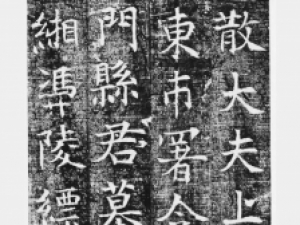 散大夫上
東市署令
門縣君墓
緗馮陵縹